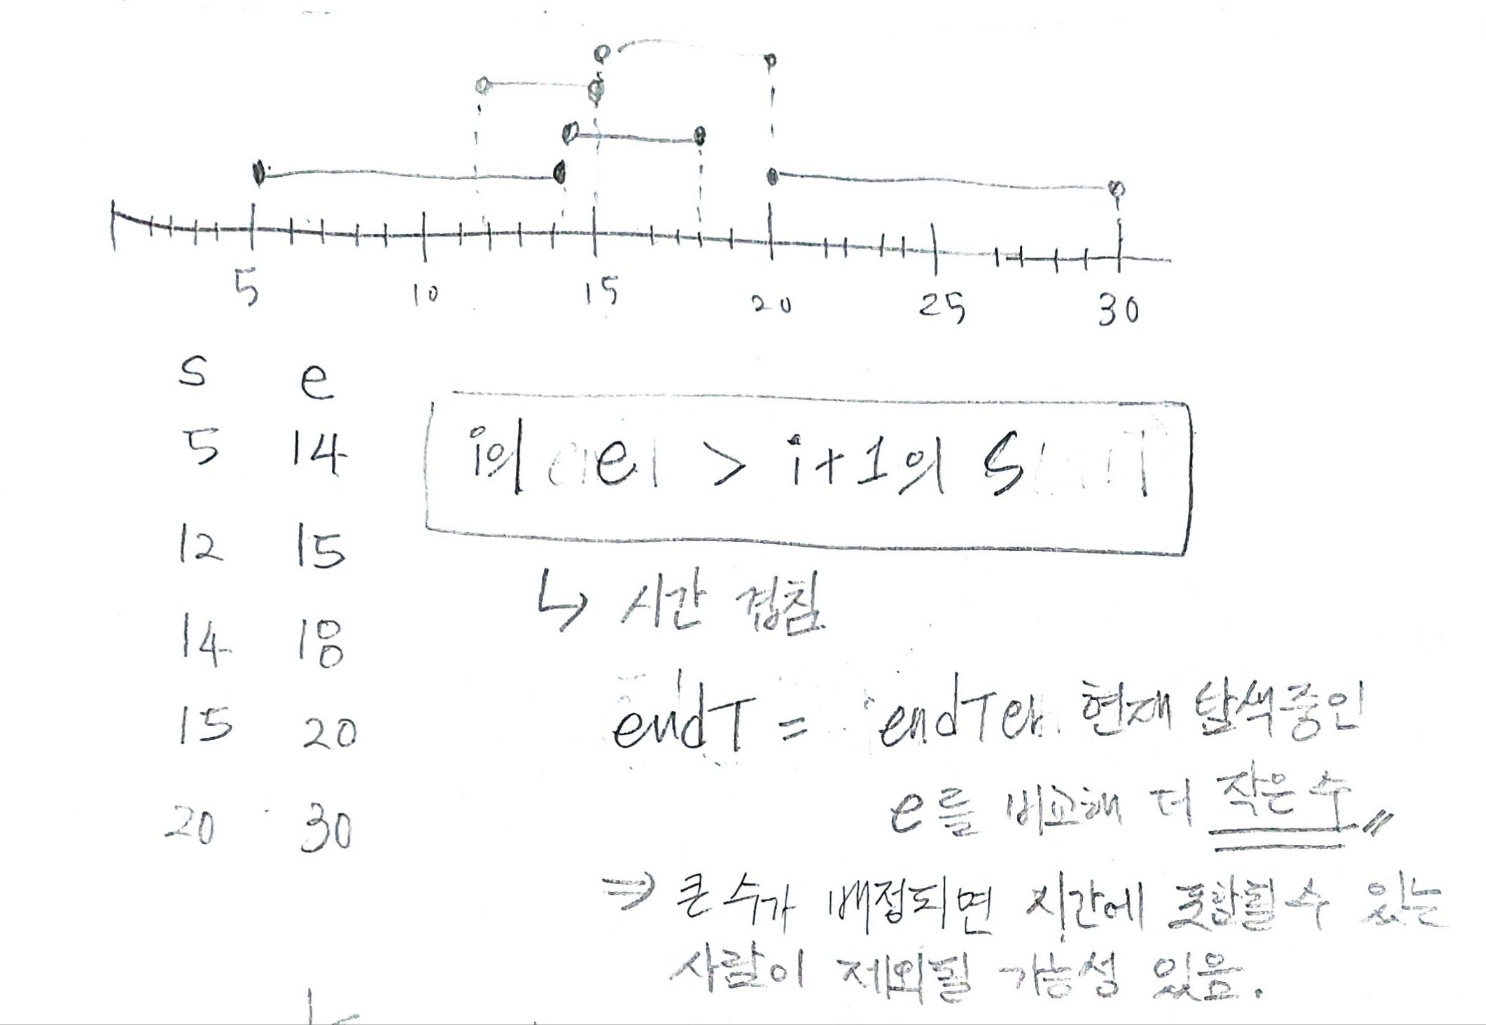 5 10 15 20 25 30
s e
5 14
12 15
14 18
15 20
20 30
i의 e > i+1의 s
↳ 시간 겹침
endT = endT와 현재 탐색중인
e를 비교해 더 작은 수
⇒ 큰 수가 배정되면 시간에 포함될 수 있는
사람이 제외될 가능성 있음.